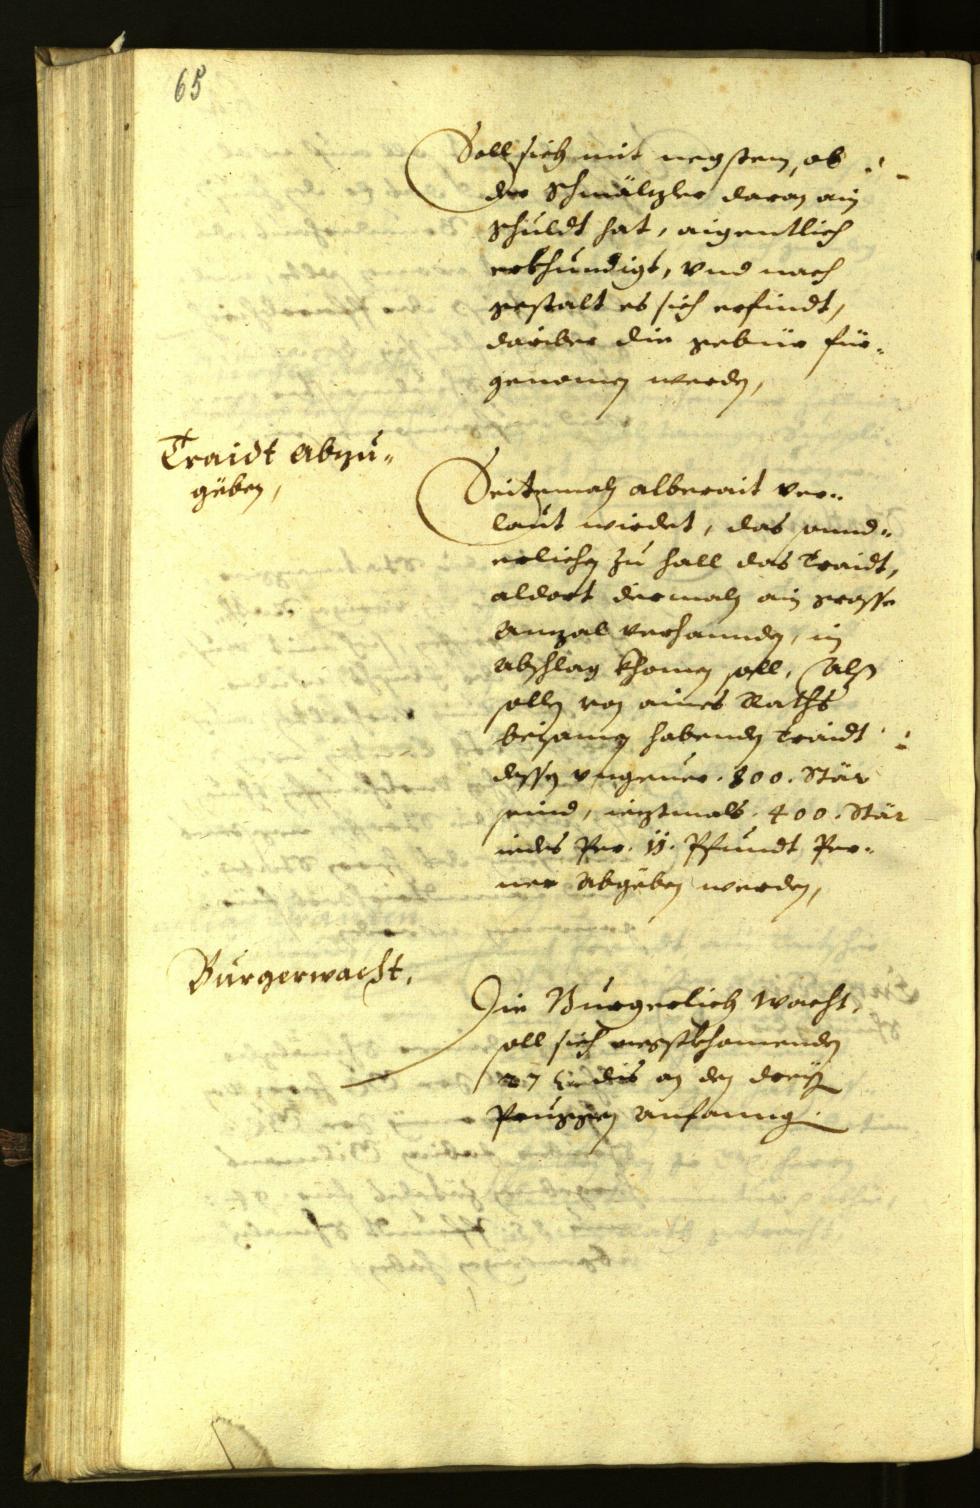 65
Soll sich mit negstem, ob
der Schmälzler daran ain
schuldt hat, aigentlich
erkhundigt, vnd nach
gestalt es sich erfindt,
darüber die gebür für-
genomen werden,
Traidt abzu-
geben,
Seitemaln alberait ver-
laut wirdet, das sund-
erlichen zu Hall das Traidt,
aldort diemaln ain grosse
Anzal verhannden, in
Abschlag khomen soll, Als
sollen von aines Raths
beysamen habenden Traidt
dessen vngeuer .800. Stär
seind, ieztmals .400. Stär
iedes Per. ij. Pfundt Per-
ner abgeben werden,
Burgerwacht.
Die Burgerlich Wacht,
soll sich negstkhomenden
27 dis an den dreÿ
Pruggen anfanng.